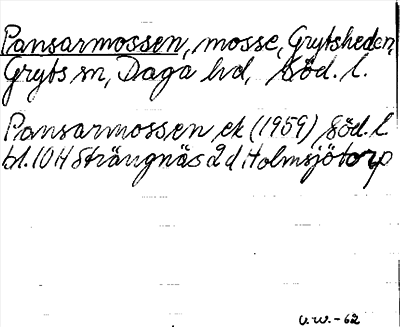 Pansarmossen, mosse, Grytsheden,
Gryts sn, Daga hd, Söd. l.
Pansarmossen ek (1959) Söd. l
bl. 10 H Strängnäs 2 d Holmsjötorp
V.W.-62